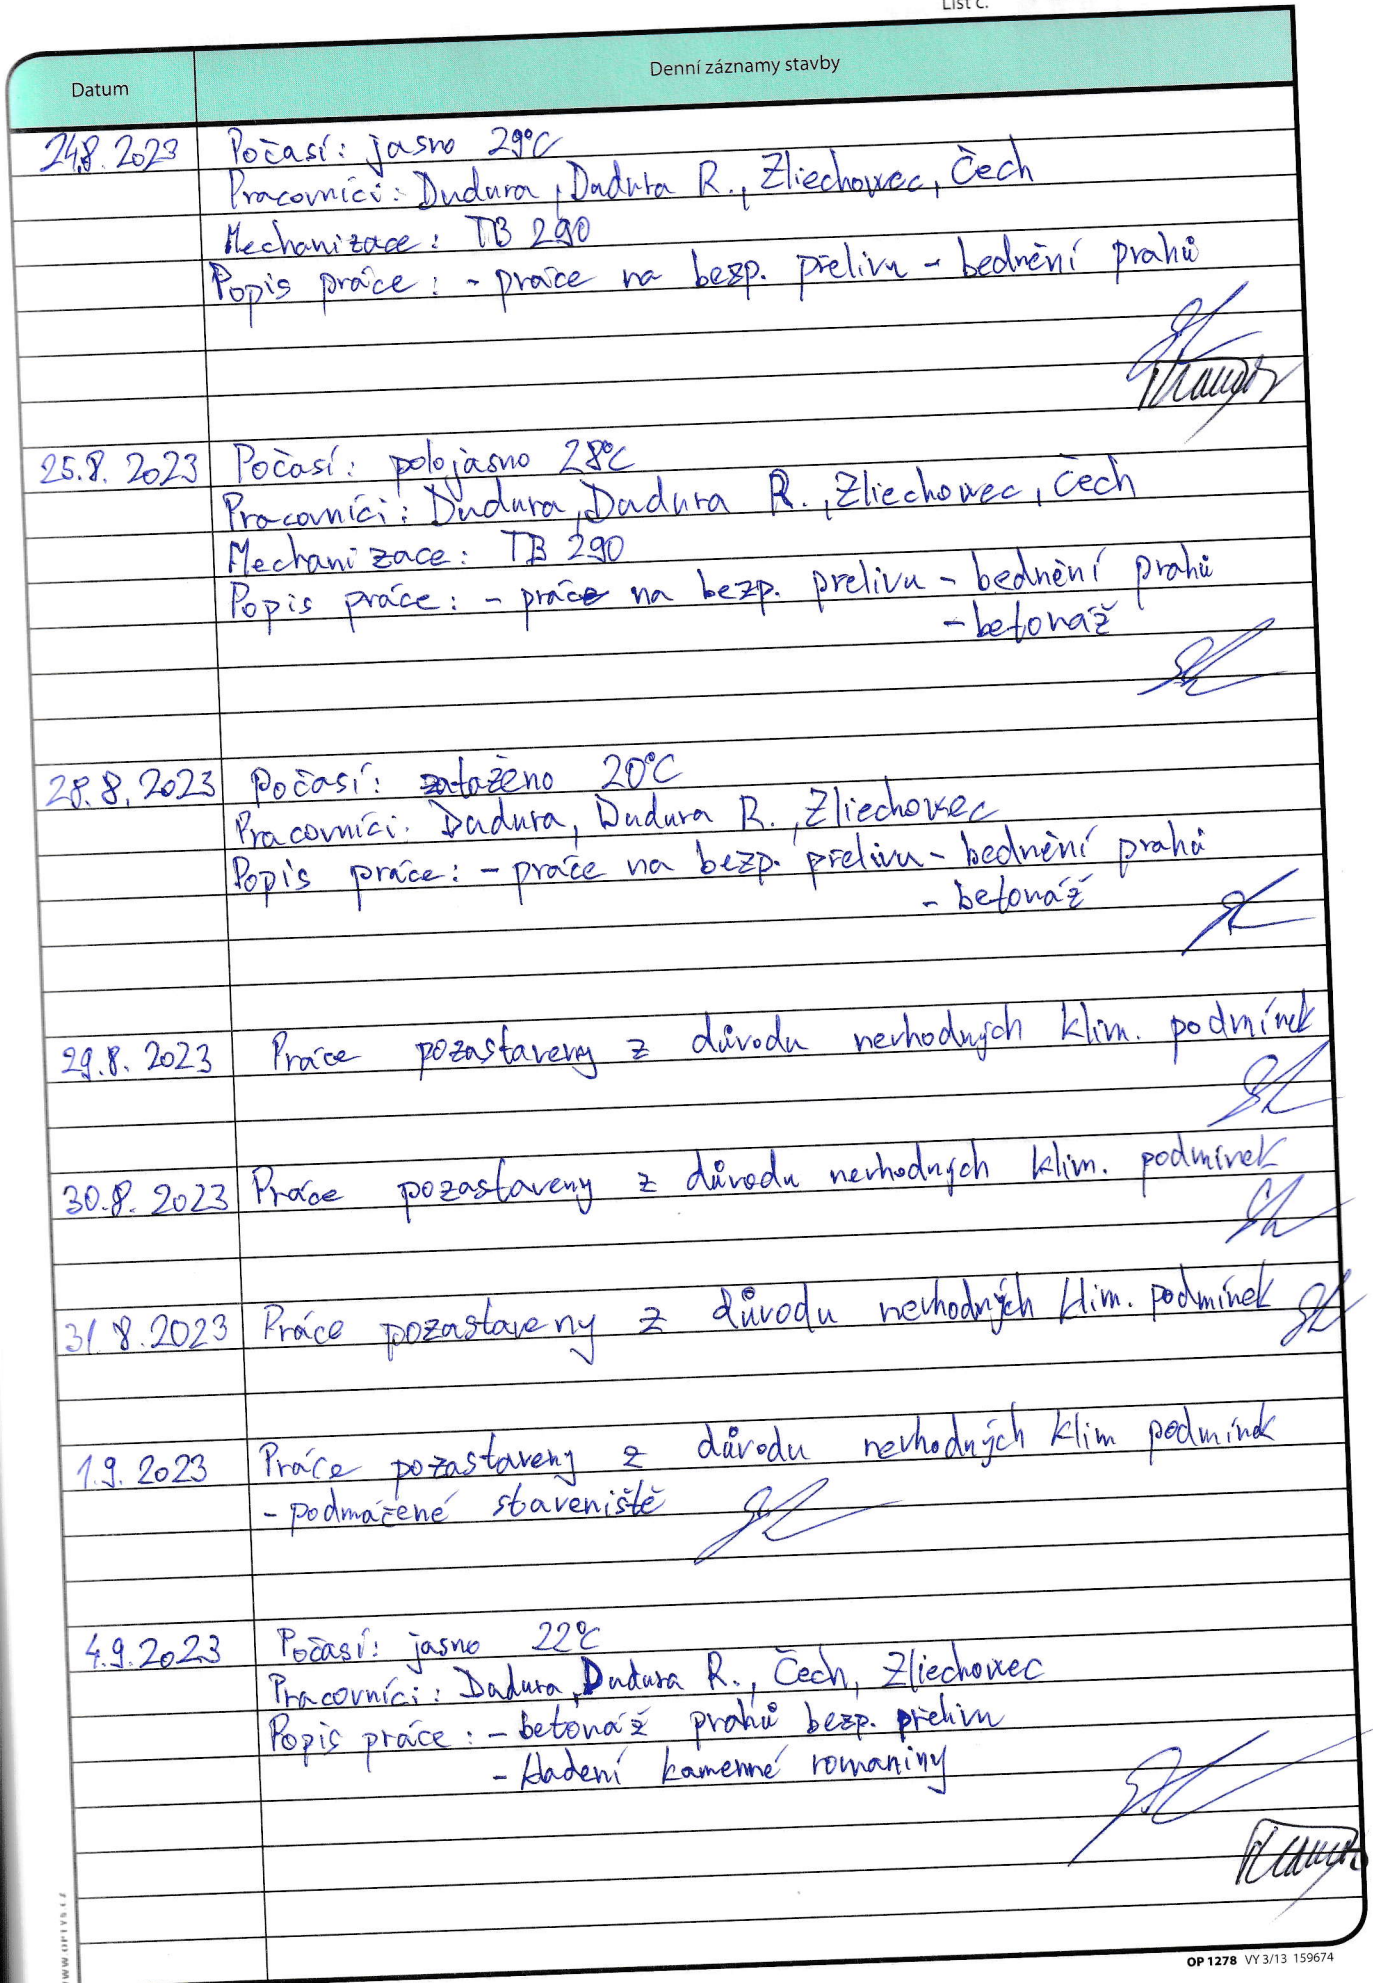 List č.
Datum
Denní záznamy stavby
24.8. 2023 Počasí: jasno 29°C
Pracovníci: Dudura, Dudura R., Zliechovec, Čech
Mechanizace: TB 290
Popis práce: - práce na bezp. přelivu - bednění prahů
25.8. 2023 Počasí: polojasno 28°C
Pracovníci: Dudura, Dudura R., Zliechovec, Čech
Mechanizace: TB 290
Popis práce: - práce na bezp. přelivu - bednění prahů
- betonáž
28.8. 2023 Počasí: zataženo 20°C
Pracovníci: Dudura, Dudura R., Zliechovec
Popis práce: - práce na bezp. přelivu - bednění prahů
- betonáž
29.8. 2023 Práce pozastaveny z důvodu nevhodných klim. podmínek
30.8. 2023 Práce pozastaveny z důvodu nevhodných klim. podmínek
31.8.2023 Práce pozastaveny z důvodu nevhodných klim. podmínek
1.9. 2023 Práce pozastaveny z důvodu nevhodných klim podmínek
- podmáčené staveniště
4.9.2023 Počasí: jasno 22°C
Pracovníci: Dudura, Dudura R., Čech, Zliechovec
Popis práce: - betonáž prahů bezp. přelivu
- kladení kamenné rovnaniny
WWW.OPTYS.CZ
OP 1278 VY 3/13 159674